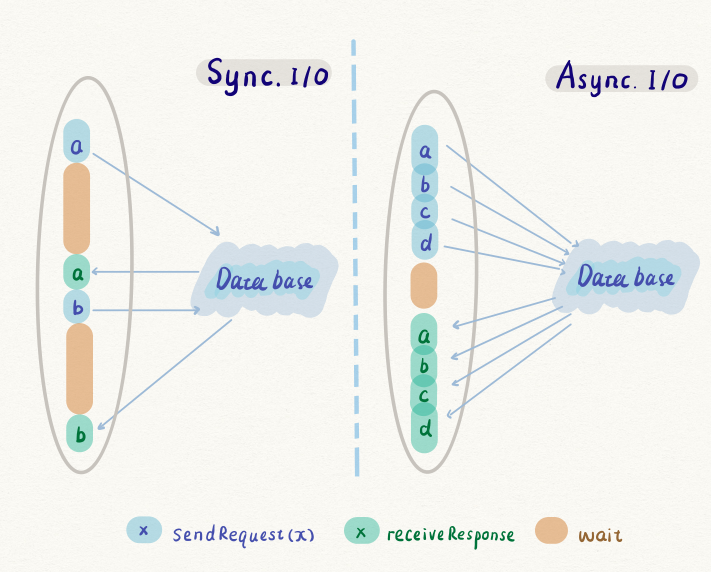 Sync. I/O
a
a
b
b
Data base
Async. I/O
a
b
c
d
a
b
c
d
Data base
x sendRequest(x)
x receiveResponse
wait